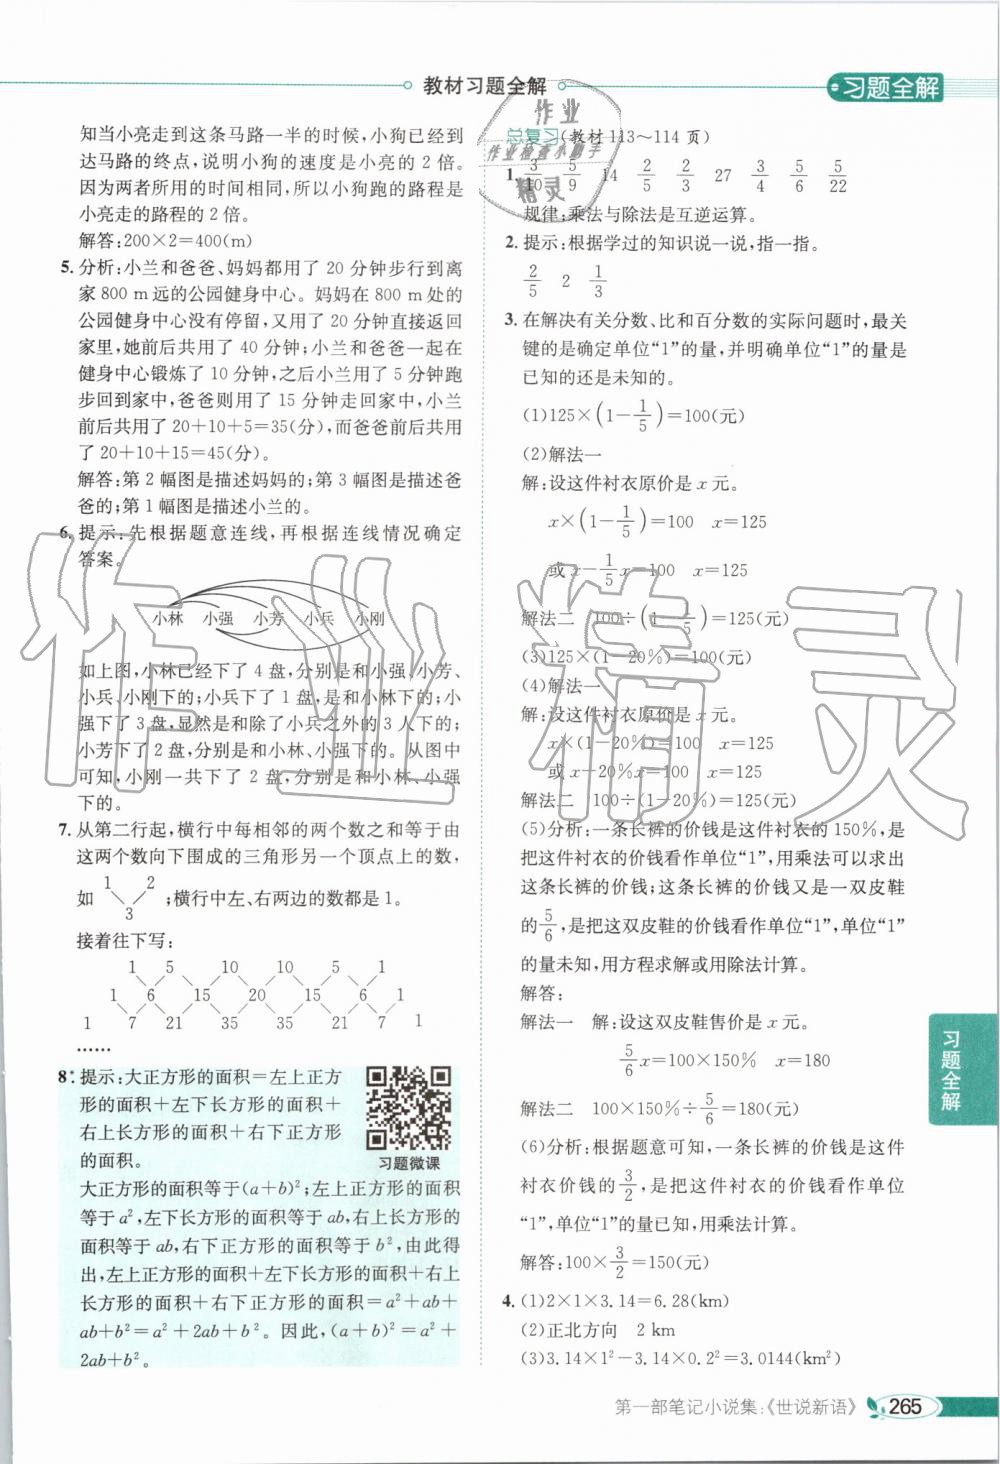 教材习题全解
习题全解
知当小亮走到这条马路一半的时候,小狗已经到
达马路的终点,说明小狗的速度是小亮的 2 倍。
因为两者所用的时间相同,所以小狗跑的路程是
小亮走的路程的 2 倍。
解答:200×2=400(m)
5. 分析:小兰和爸爸、妈妈都用了 20 分钟步行到离
家 800 m远的公园健身中心。妈妈在 800 m 处的
公园健身中心没有停留,又用了 20 分钟直接返回
家里,她前后共用了 40 分钟;小兰和爸爸一起在
健身中心锻炼了 10 分钟,之后小兰用了 5 分钟跑
步回到家中,爸爸则用了 15 分钟走回家中,小兰
前后共用了 20+10+5=35(分),而爸爸前后共用
了 20+10+15=45(分)。
解答:第 2 幅图是描述妈妈的;第 3 幅图是描述爸
爸的;第 1 幅图是描述小兰的。
6. 提示:先根据题意连线,再根据连线情况确定
答案。
小林 小强 小芳 小兵 小刚
如上图,小林已经下了 4 盘,分别是和小强、小芳、
小兵、小刚下的;小兵下了 1 盘,是和小林下的;小
强下了 3 盘,显然是和除了小兵之外的 3 人下的;
小芳下了 2 盘,分别是和小林、小强下的。从图中
可知,小刚一共下了 2 盘,分别是和小林、小强
下的。
7. 从第二行起,横行中每相邻的两个数之和等于由
这两个数向下围成的三角形另一个顶点上的数,
如 1 2 3 ;横行中左、右两边的数都是 1。
接着往下写:
1 5 10 10 5 1
1 6 15 20 15 6 1
1 7 21 35 35 21 7 1
……
8* 提示:大正方形的面积=左上正方
形的面积+左下长方形的面积+
右上长方形的面积+右下正方形
的面积。
习题微课
大正方形的面积等于(a+b)²;左上正方形的面积
等于 a²,左下长方形的面积等于 ab,右上长方形的
面积等于 ab,右下正方形的面积等于 b²,由此得
出,左上正方形的面积+左下长方形的面积+右上
长方形的面积+右下正方形的面积=a²+ab+
ab+b²=a²+2ab+b²。因此,(a+b)²=a²+
2ab+b²。
总复习(教材 113～114 页)
1. 3/10 5/9 14 2/5 2/3 27 3/4 5/6 5/22
规律:乘法与除法是互逆运算。
2. 提示:根据学过的知识说一说,指一指。
2/5 2 1/3
3. 在解决有关分数、比和百分数的实际问题时,最关
键的是确定单位“1”的量,并明确单位“1”的量是
已知的还是未知的。
(1)125×(1-1/5)=100(元)
(2)解法一
解:设这件衬衣原价是 x 元。
x×(1-1/5)=100 x=125
或 x-1/5x=100 x=125
解法二 100÷(1-1/5)=125(元)
(3)125×(1-20%)=100(元)
(4)解法一
解:设这件衬衣原价是 x 元。
x×(1-20%)=100 x=125
或 x-20%x=100 x=125
解法二 100÷(1-20%)=125(元)
(5)分析:一条长裤的价钱是这件衬衣的 150%,是
把这件衬衣的价钱看作单位“1”,用乘法可以求出
这条长裤的价钱;这条长裤的价钱又是一双皮鞋
的5/6,是把这双皮鞋的价钱看作单位“1”,单位“1”
的量未知,用方程求解或用除法计算。
解答:
解法一 解:设这双皮鞋售价是 x 元。
5/6x=100×150% x=180
解法二 100×150%÷5/6=180(元)
(6)分析:根据题意可知,一条长裤的价钱是这件
衬衣价钱的3/2,是把这件衬衣的价钱看作单位
“1”,单位“1”的量已知,用乘法计算。
解答:100×3/2=150(元)
4. (1)2×1×3.14=6.28(km)
(2)正北方向 2 km
(3)3.14×1²-3.14×0.2²=3.0144(km²)
习题全解
第一部笔记小说集:《世说新语》 265
作业
作业检查小助手
精灵
作业精灵